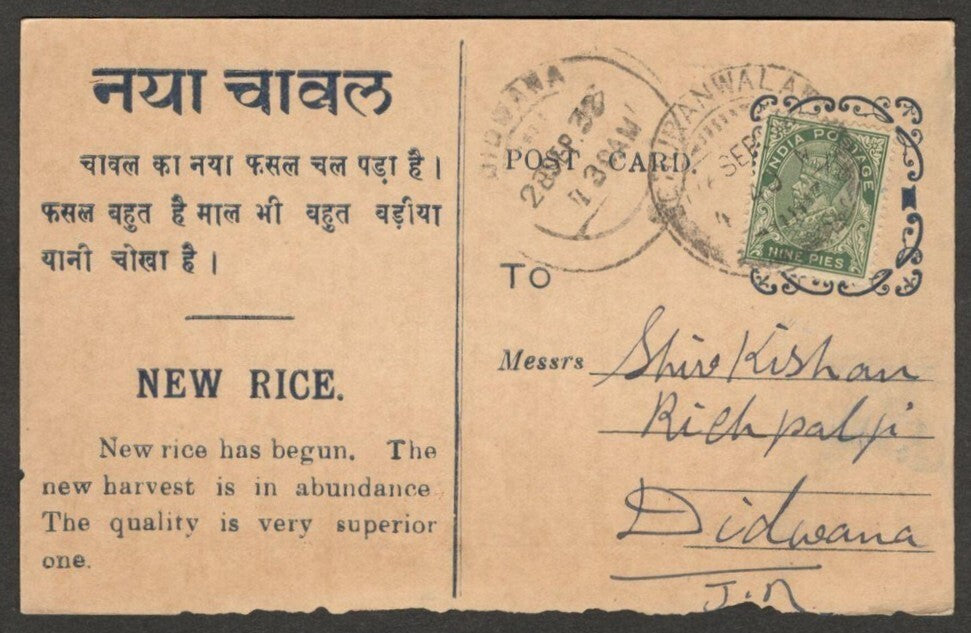 नया चावल
चावल का नया फसल चल पड़ा है।
फसल बहुत है माल भी बहुत बड़ीया
यानी चोखा है।
NEW RICE.
New rice has begun. The
new harvest is in abundance
The quality is very superior
one.
DIDWANA
28 SEP. 38
11 30 AM
SEP
POST CARD.
INDIA POSTAGE
NINE PIES
TO
Messrs Shiv Kishan
Richpalji
Didwana
J.R